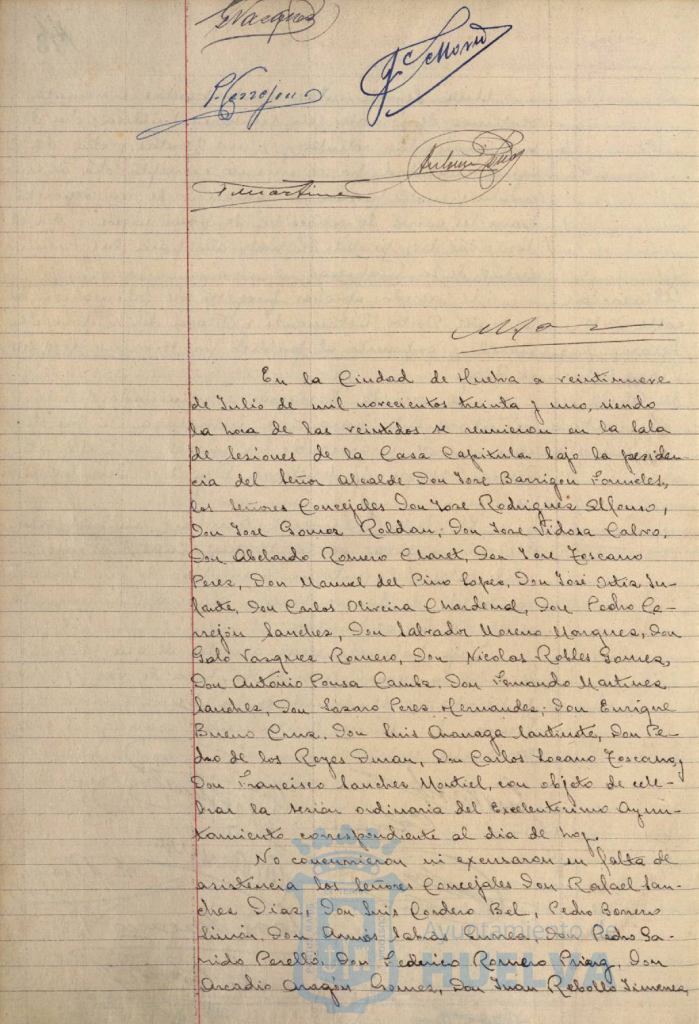 G Vazquez
J. S. Moreno
P. Cerrejon
Antonio
F Martinez
En la Ciudad de Huelva a veintinueve
de Julio de mil novecientos treinta y uno, siendo
la hora de las veintidos se reunieron en la Sala
de Sesiones de la Casa Capitular bajo la presiden-
cia del Señor Alcalde Don José Barrigon Fornieles,
los Señores Concejales Don José Rodriguez Alfonso,
Don José Gomez Roldan, Don José Vidosa Calvo,
Don Abelardo Romero Claret, Don José Toscano
Perez, Don Manuel del Pino Lopez, Don José Ortiz In-
fante, Don Carlos Oliveira Chardenal, Don Pedro Ce-
rrejón Sanchez, Don Salvador Moreno Marquez, Don
Galo Vazquez Romero, Don Nicolas Robles Gomez,
Don Antonio Pousa Camba, Don Fernando Martinez
Sanchez, Don Lazaro Perez Hernandez, Don Enrique
Bueno Cruz, Don Luis Aranaga Santirote, Don Pe-
dro de los Reyes Duran, Don Carlos Lozano Toscano, y
Don Francisco Sanchez Montiel, con objeto de cele-
brar la sesión ordinaria del Excelentisimo Ayun-
tamiento correspondiente al dia de hoy.
No concurrieron ni excusaron su falta de
asistencia los Señores Concejales Don Rafael San-
chez Diaz, Don Luis Cordero Bel, Pedro Borrero
Limón, Don Amós Sabrás Gurrea, Don Pedro Ga-
rrido Perelló, Don Federico Romero Don
Arcadio Aragón Gomez, Don Juan Rebollo Jimenez
Ayuntamiento de
HUELVA